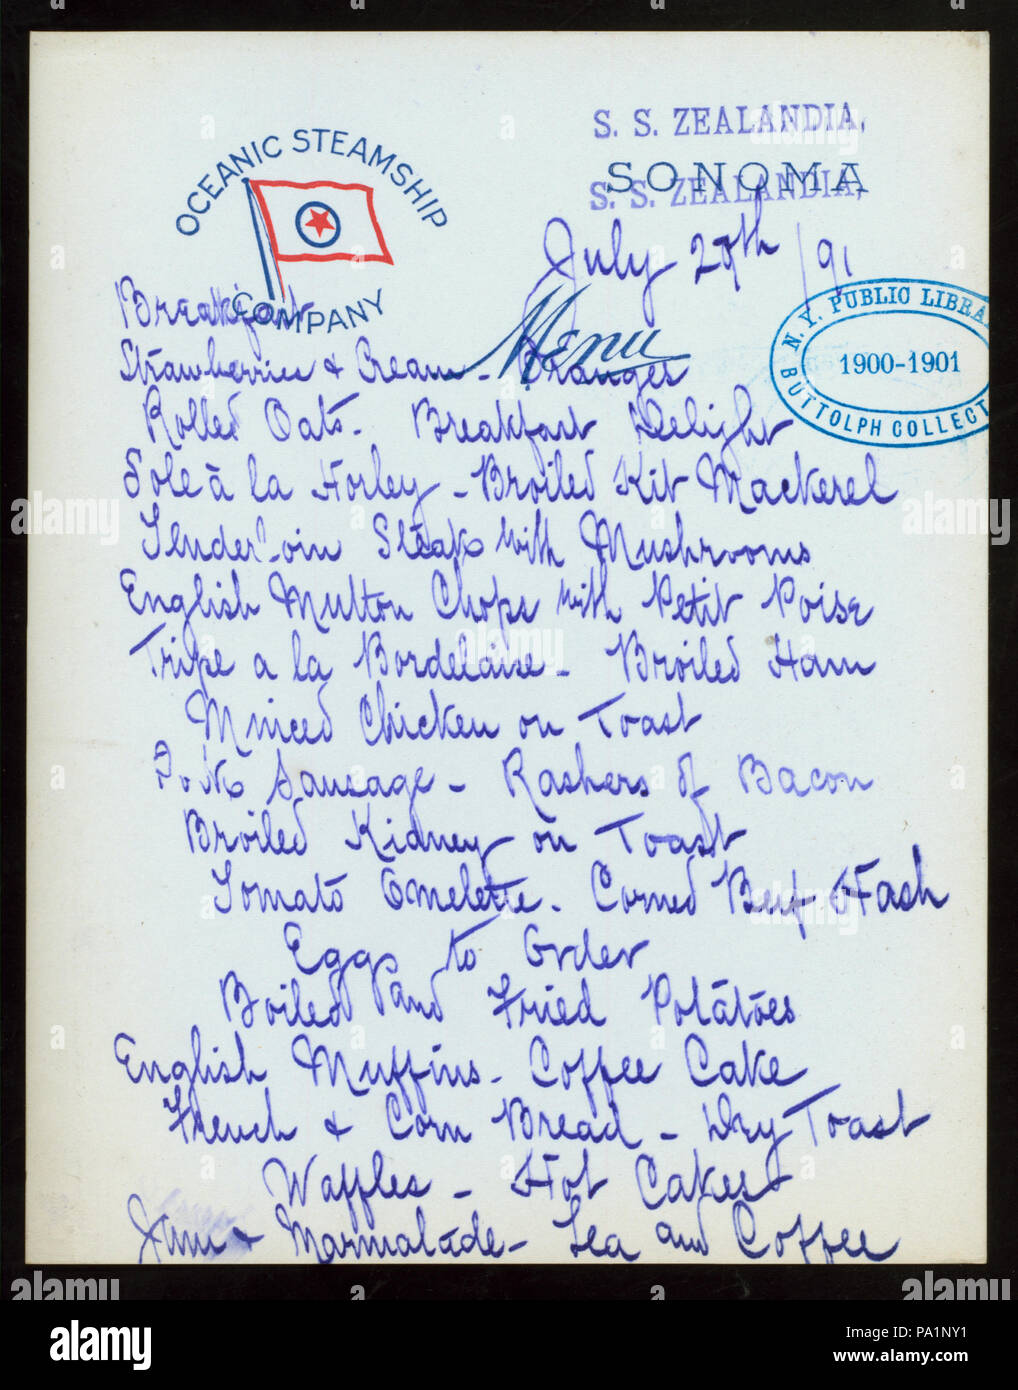 S. S. ZEALANDIA,
SONOMA
S. S. ZEALANDIA,
OCEANIC STEAMSHIP
COMPANY
July 29th /91
Menu
N. Y. PUBLIC LIBRA
1900-1901
BUTTOLPH COLLECT
Breakfast
Strawberries & Cream - Oranges
Rolled Oats. Breakfast Delight
Sole à la Horley - Broiled Kit Mackerel
Tenderloin Steak with Mushrooms
English Mutton Chops with Petit Poise
Tripe a la Bordelaise - Broiled Ham
Minced Chicken on Toast
Pork Sausage - Rashers of Bacon
Broiled Kidney on Toast
Tomato Omelette. Corned Beef Hash
Eggs to Order
Boiled and Fried Potatoes
English Muffins - Coffee Cake
French & Corn Bread - Dry Toast
Waffles - Hot Cakes
Jam & Marmalade - Tea and Coffee
alamy
alamy
Image ID: PA1NY1
www.alamy.com